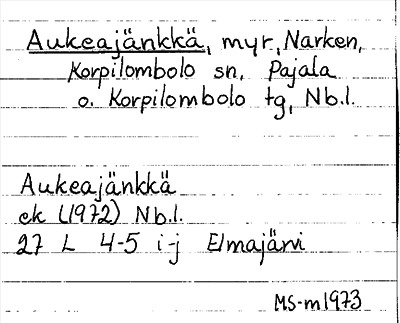 Aukeajänkkä, myr, Narken,
Korpilombolo sn, Pajala
o. Korpilombolo tg, Nb.l.
Aukeajänkkä
ek (1972) Nb.l.
27 L 4-5 i-j Elmajärvi
MS-m1973